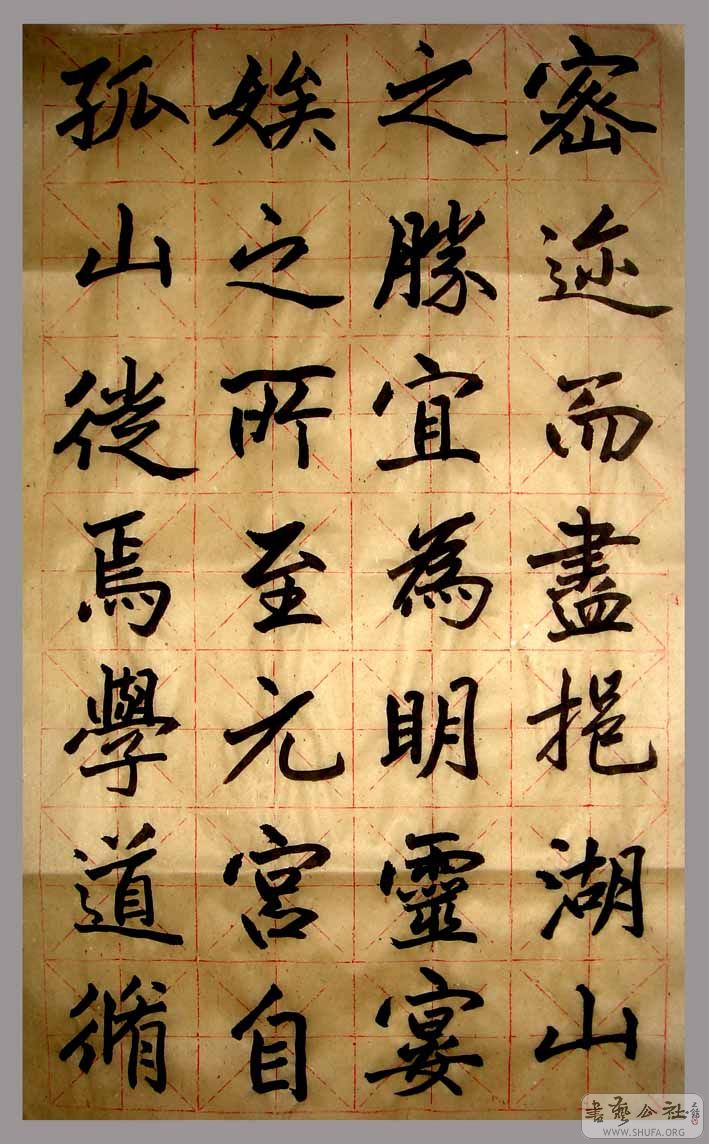 密迩而盡挹湖山
之勝宜為明靈宴
娭之所至元宮自
孤山徙焉學道脩
書藝公社
WWW.SHUFA.ORG